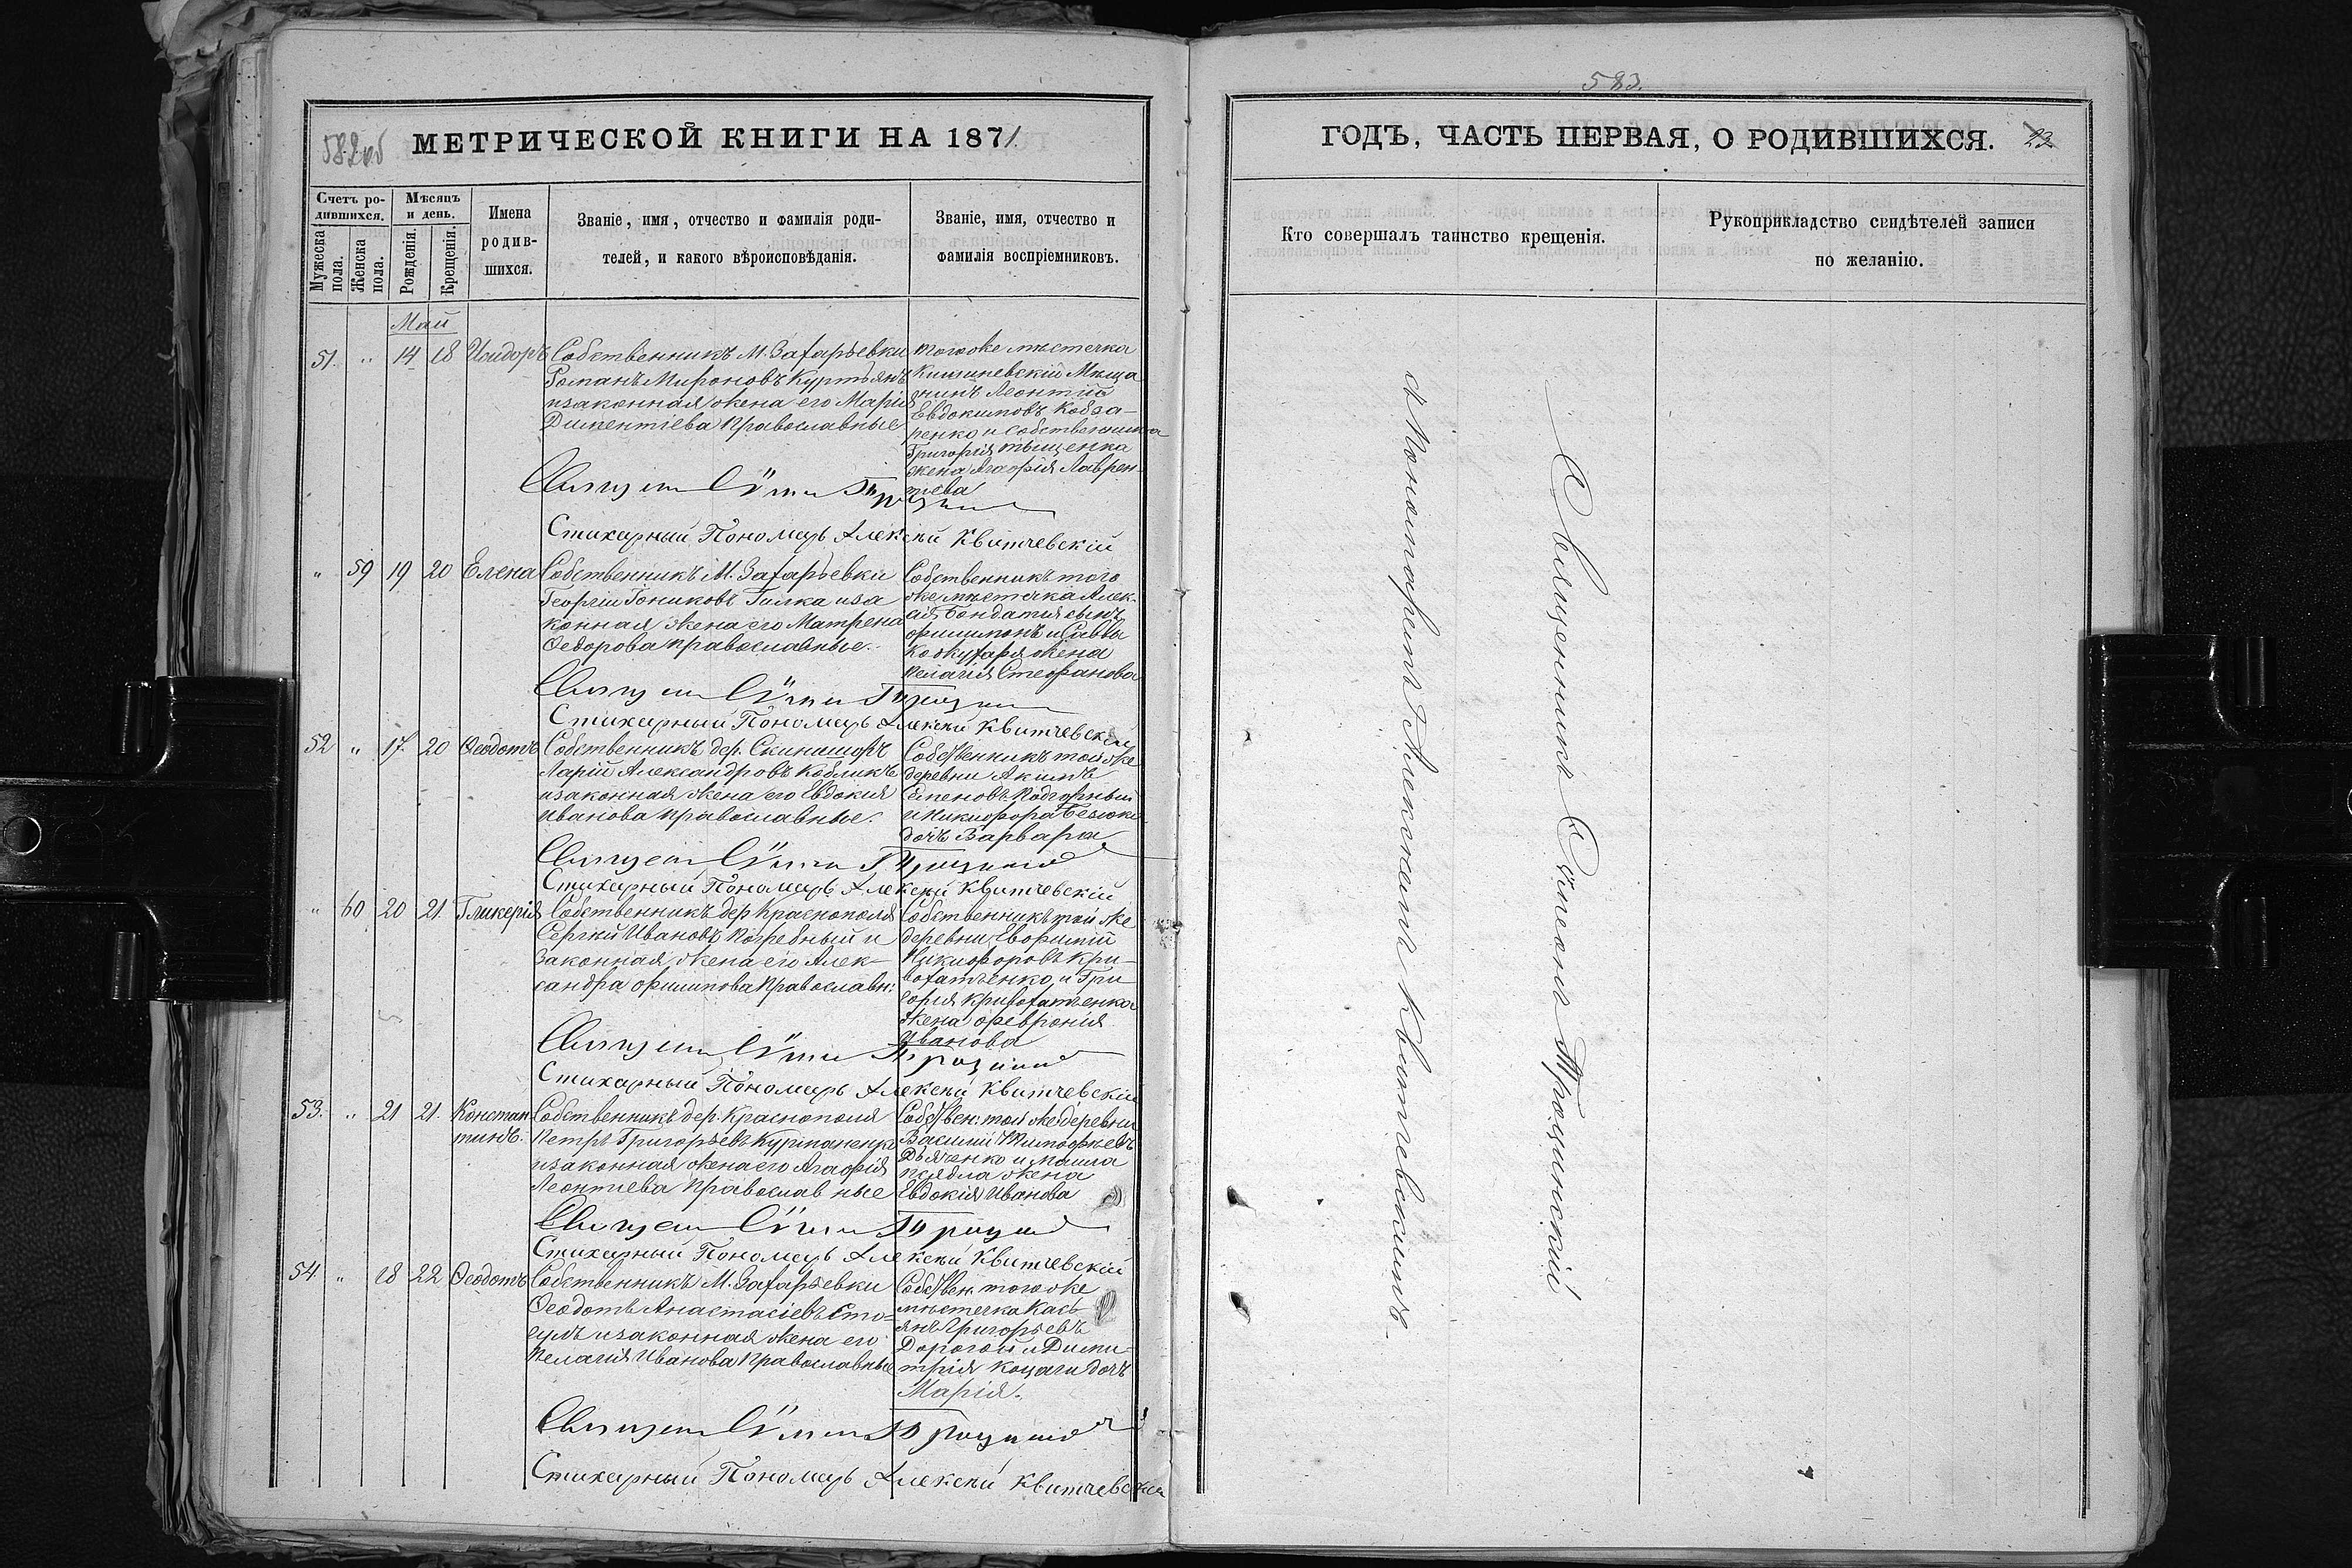 582об
МЕТРИЧЕСКОЙ КНИГИ НА 1871.
Счетъ ро-
дившихся.
Мужеска
пола.
Женска
пола.
Мѣсяцъ
и день.
Рожденія.
Крещенія.
Имена
родив-
шихся.
Званіе, имя, отчество и фамилія роди-
телей, и какого вѣроисповѣданія.
Званіе, имя, отчество и
фамилія воспріемниковъ.
Май
51. " 14 18 Исидоръ
Собственникъ М. Захарьевки
Романъ Мироновъ Куртьянъ
и законная жена его Марія
Диментіева Православные
тогоже мѣстечка
Кишиневскій Мѣща
нинъ Леонтій
Евдокимовъ Кобза-
ренко и собственника
Григорія Тыщенка
жена Агафія Лаврен-
тіева
Стихарный Пономарь Алексѣй Квитчевскій
" 59 19 20 Елена
Собственникъ М. Захарьевки
Георгій Гилка и за
конная жена его Матрена
Ѳедорова православные.
Собственникъ того
же мѣстечка Алек-
сія сынъ
Филимонъ и Саввы
Кожухаря жена
Пелагія Стефанова
Стихарный Пономарь Алексѣй Квитчевскій
52 " 17. 20 Ѳеодотъ
Собственникъ дер.
Ларій Александровъ Кобликъ
и законная жена его Евдокія
Иванова православные.
Собственникъ тойже
деревни Акимъ
Семеновъ Подгорный
и Никифора
дочь Варвара
Стихарный Пономарь Алексѣй Квитчевскій
" 60 20 21 Гликерія
Собственникъ дер Краснополя
Сергѣй Ивановъ Погребный и
законная жена его Алек-
сандра Филипова Православн:
Собственникъ той же
деревни Евфимій
Никифоровъ Кри-
вохатченко и Гри-
горія Кривохатченка
жена Февронія
Иванова
Стихарный Пономарь Алексѣй Квитчевскій
53. " 21 21. Констан
тинъ.
Собственникъ дер. Краснополя
Петръ Григорьевъ
и законная жена его Агафія
Леонтиева Православные
Собствен: той же деревни
Василій Тимофѣевъ
Дьяченко и
жена
Евдокія Иванова
Стихарный Пономарь Алексѣй Квитчевскій
54. " 18 22 Ѳеодотъ
Собственникъ М. Захарьевки
Ѳеодотъ Анастасіевъ Сто-
и законная жена его
Пелагія Иванова Православные
Собствен. тогоже
мѣстечка Кась-
янъ Григорьевъ
Дорогой и Дими-
трія дочь
Марія.
Стихарный Пономарь Алексѣй Квитчевскій
583.
ГОДЪ, ЧАСТЬ ПЕРВАЯ, О РОДИВШИХСЯ.
23
Кто совершалъ таинство крещенія.
Рукоприкладство свидѣтелей записи
по желанію.
Священникъ Симеонъ Троцинскій
съ Пономаремъ Алексѣемъ Квитчевскимъ